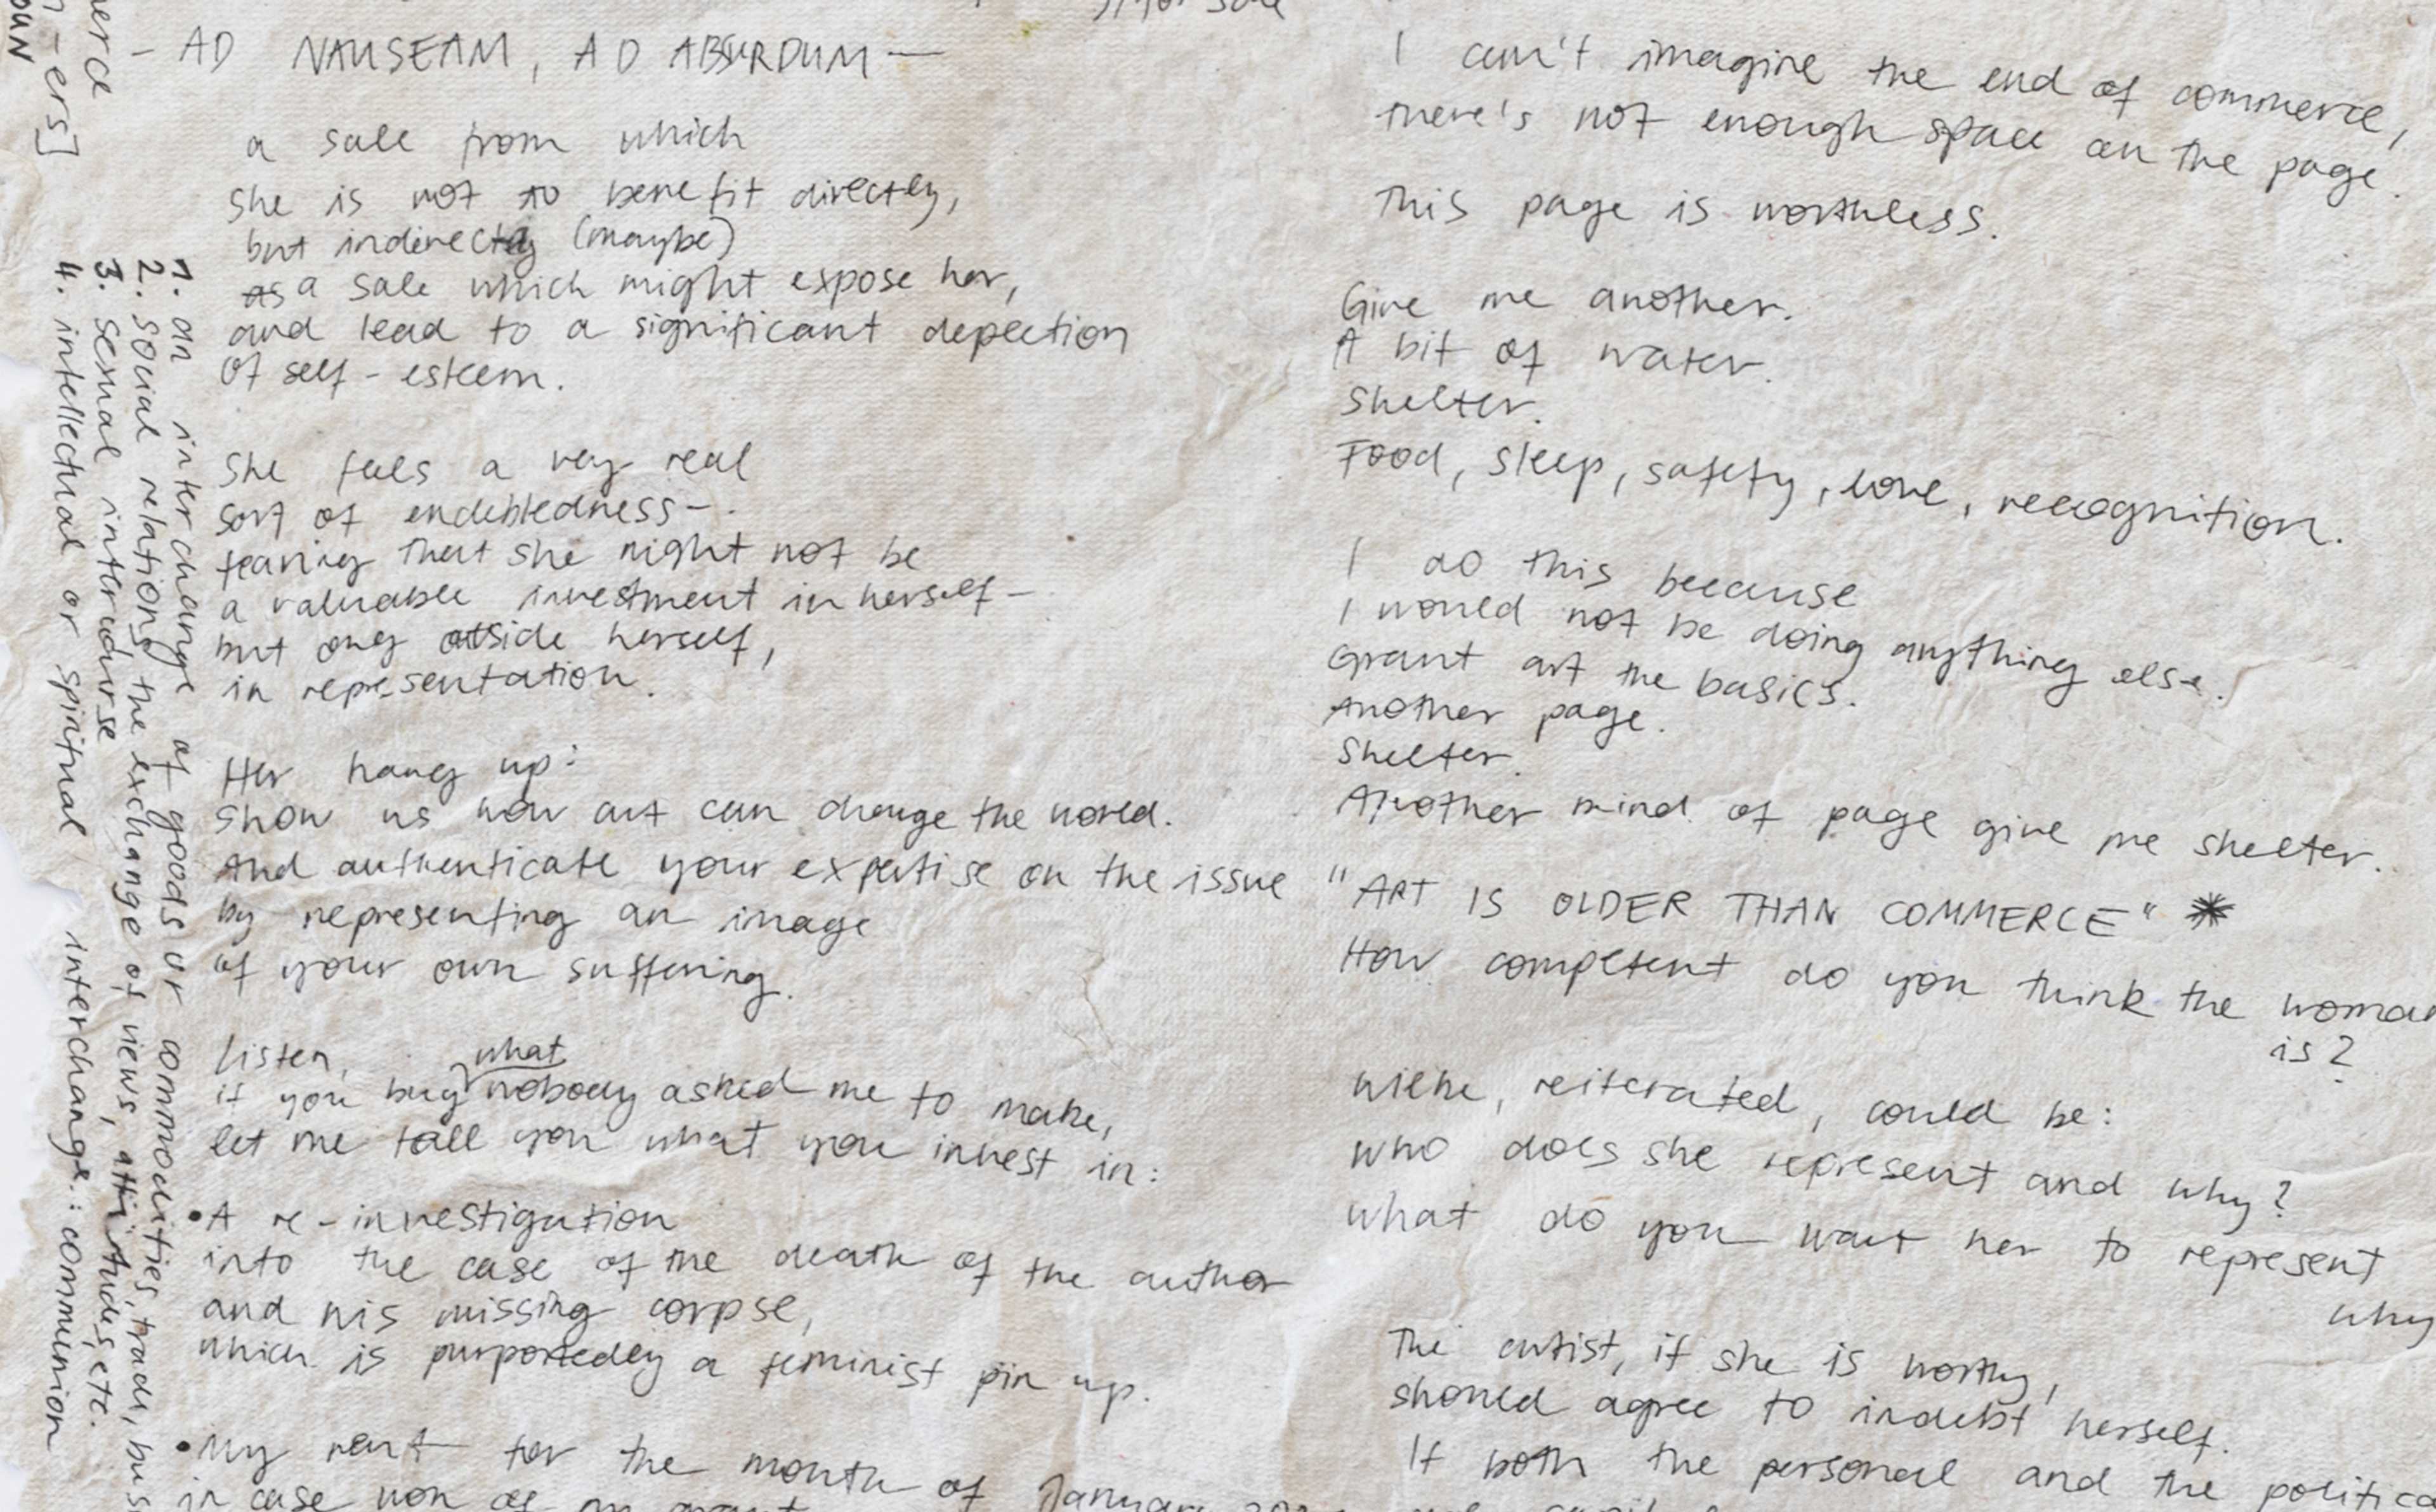 - AD NAUSEAM, AD ABSURDUM —
a sale from which
she is not to benefit directly,
but indirectly (maybe)
as a sale which might expose her,
and lead to a significant depection
of self-esteem.
She feels a very real
sort of endebtedness -
fearing that she might not be
a valuable investment in herself -
but only outside herself,
in representation.
Her hang up:
Show us how art can change the world.
And authenticate your expertise on the issue
by representing an image
of your own suffering.
Listen,
if you buy what nobody asked me to make,
let me tell you what you invest in:
• A re-investigation
into the case of the death of the author
and his missing corpse,
which is purportedly a feminist pin up.
• My rent for the month of January
in case non of
for sale
I can't imagine the end of commerce,
there's not enough space on the page.
This page is worthless.
Give me another.
A bit of water.
Shelter.
Food, sleep, safety, love, recognition.
I do this because
I would not be doing anything else.
Grant art the basics.
Another page.
Shelter.
Another mind of page give me shelter.
"ART IS OLDER THAN COMMERCE" *
How competent do you think the woman
is?
Which, reiterated, could be:
Who does she represent and why?
What do you want her to represent
why
The artist, if she is worthy,
should agree to indebt herself.
If both the personal and the politica
erce
-ers]
OUN
1. an interchange of goods or commodities, trade, bus
2. social relations the exchange of views, attitudes, etc.
3. sexual intercourse
4. intellectual or spiritual interchange: communion